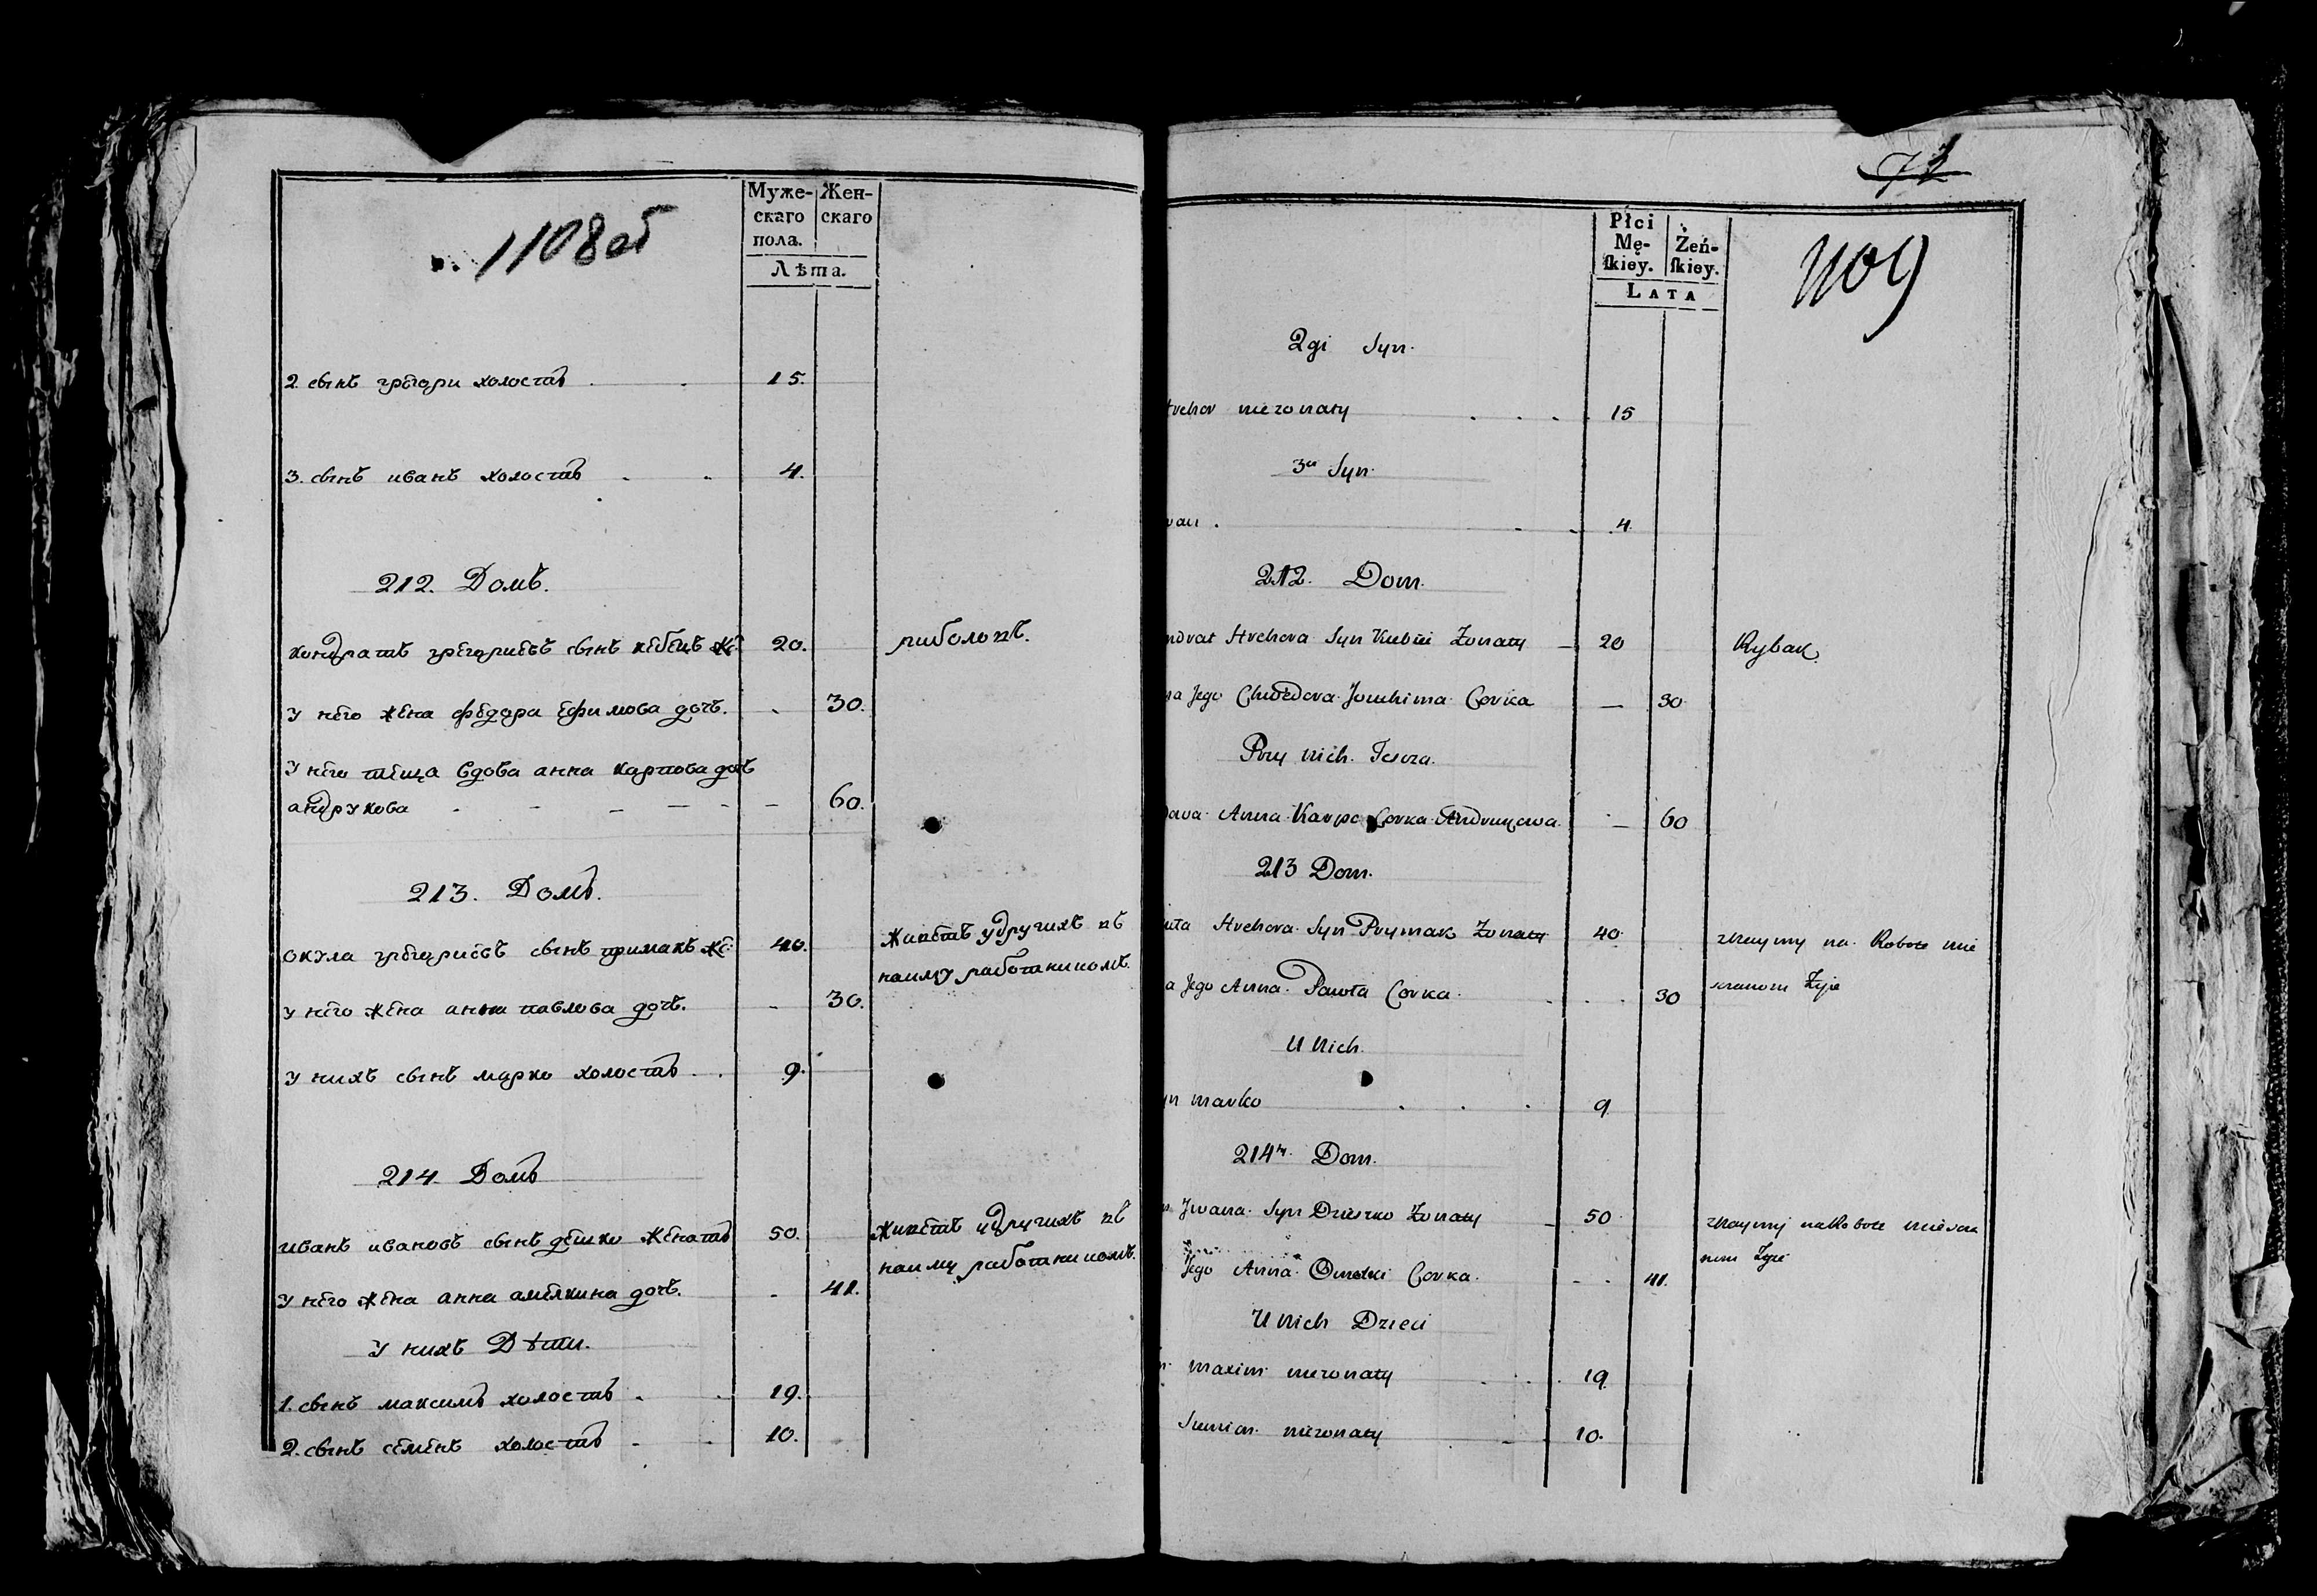 1108 об
Муже-
скаго
пола.
Жен-
скаго
Лѣта.
2. сынъ григори холостъ 15.
3. сынъ иванъ холостъ 4.
212. Домъ.
кондратъ григориевъ сынъ кебецъ же: 20. риболовъ.
У него жена федора ефимова дочь. - 30.
У него теща вдова анна карпова дочь
андрукова - 60.
213. Домъ.
окула григориевъ сынъ примакъ же: 40. живетъ у другихъ въ
найму работникомъ.
у него жена анна павлова дочь. - 30.
у нихъ сынъ марко холостъ 9.
214. Домъ
иванъ ивановъ сынъ дешко женатъ 50. живетъ у другихъ въ
найму работникомъ.
у него жена анна амелкина дочь. - 41.
у нихъ Дѣти.
1. сынъ максимъ холостъ 19.
2. сынъ семенъ холостъ 10.
73
Płci
Mę-
ſkiey.
Żeń-
ſkiey.
LATA
1109
2gi Syn.
hrehor niezonaty 15
3ci Syn.
wan 4.
212. Dom.
ndrat Hrehora Syn Kubiei Zonaty — 20 Rybak.
na Jego Chwedora Jouchima Corka — 30
Przy nich Tescza.
dawa Anna Karpo Corka Andrucowa — 60
213 Dom.
uła Hrehora Syn Prymak Zonaty 40 znaymy na Robote mie
szkanom Zyie
a Jego Anna Pawła Corka 30
U Nich
yn marko 9.
214ty Dom.
n Jwana Syn Dzieszko Zonaty 50 znaymy na Robote mieszka
nim Zyie
Jego Anna Omelki Corka 41.
U Nich Dzieci
maxim niezonaty 19
Semion niezonaty 10.